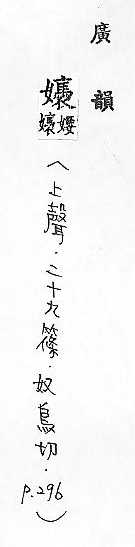 廣韻
㜵
婹㜵
(上聲.二十九篠.奴鳥切.p.296)